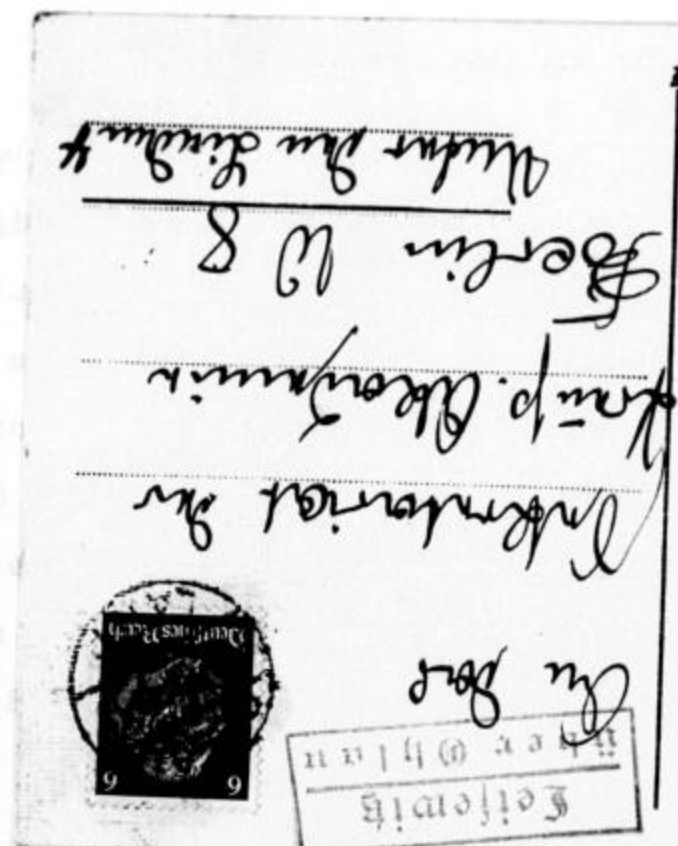 Leisewitz
über Ohlau
6 6
Deutsches Reich
An das
Sekretariat der
Preuß. Akademie
Berlin W 8
Unter den Linden